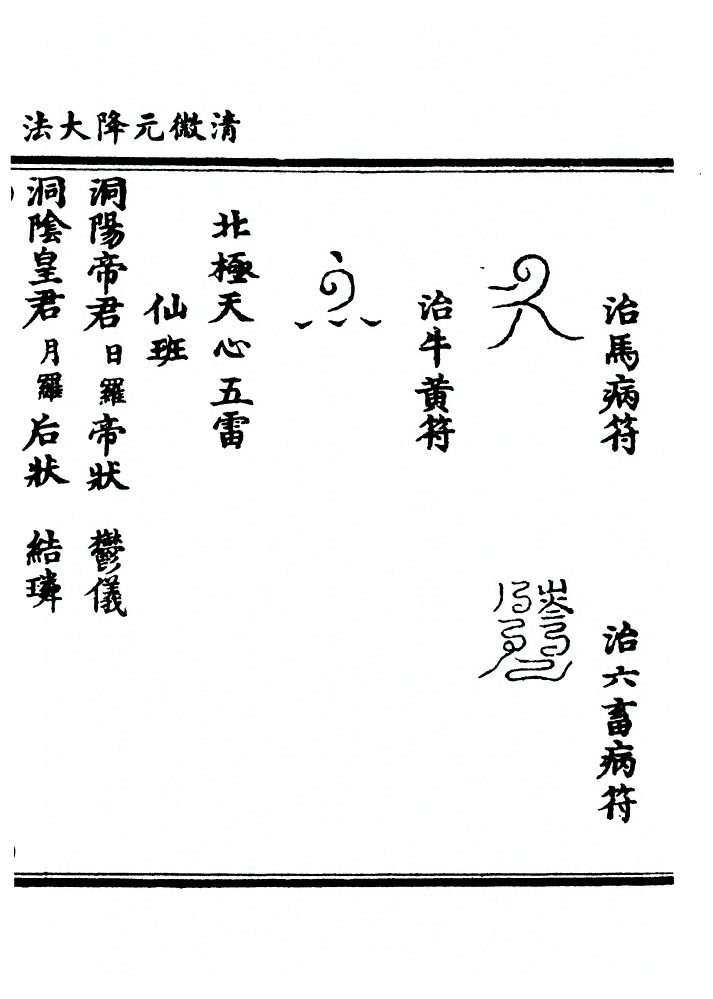 清微元降大法
治馬病符
治六畜病符
治牛黃符
北極天心五雷
仙班
洞陽帝君日羅帝狀 鬱儀
洞陰皇君月羅后狀 結璘